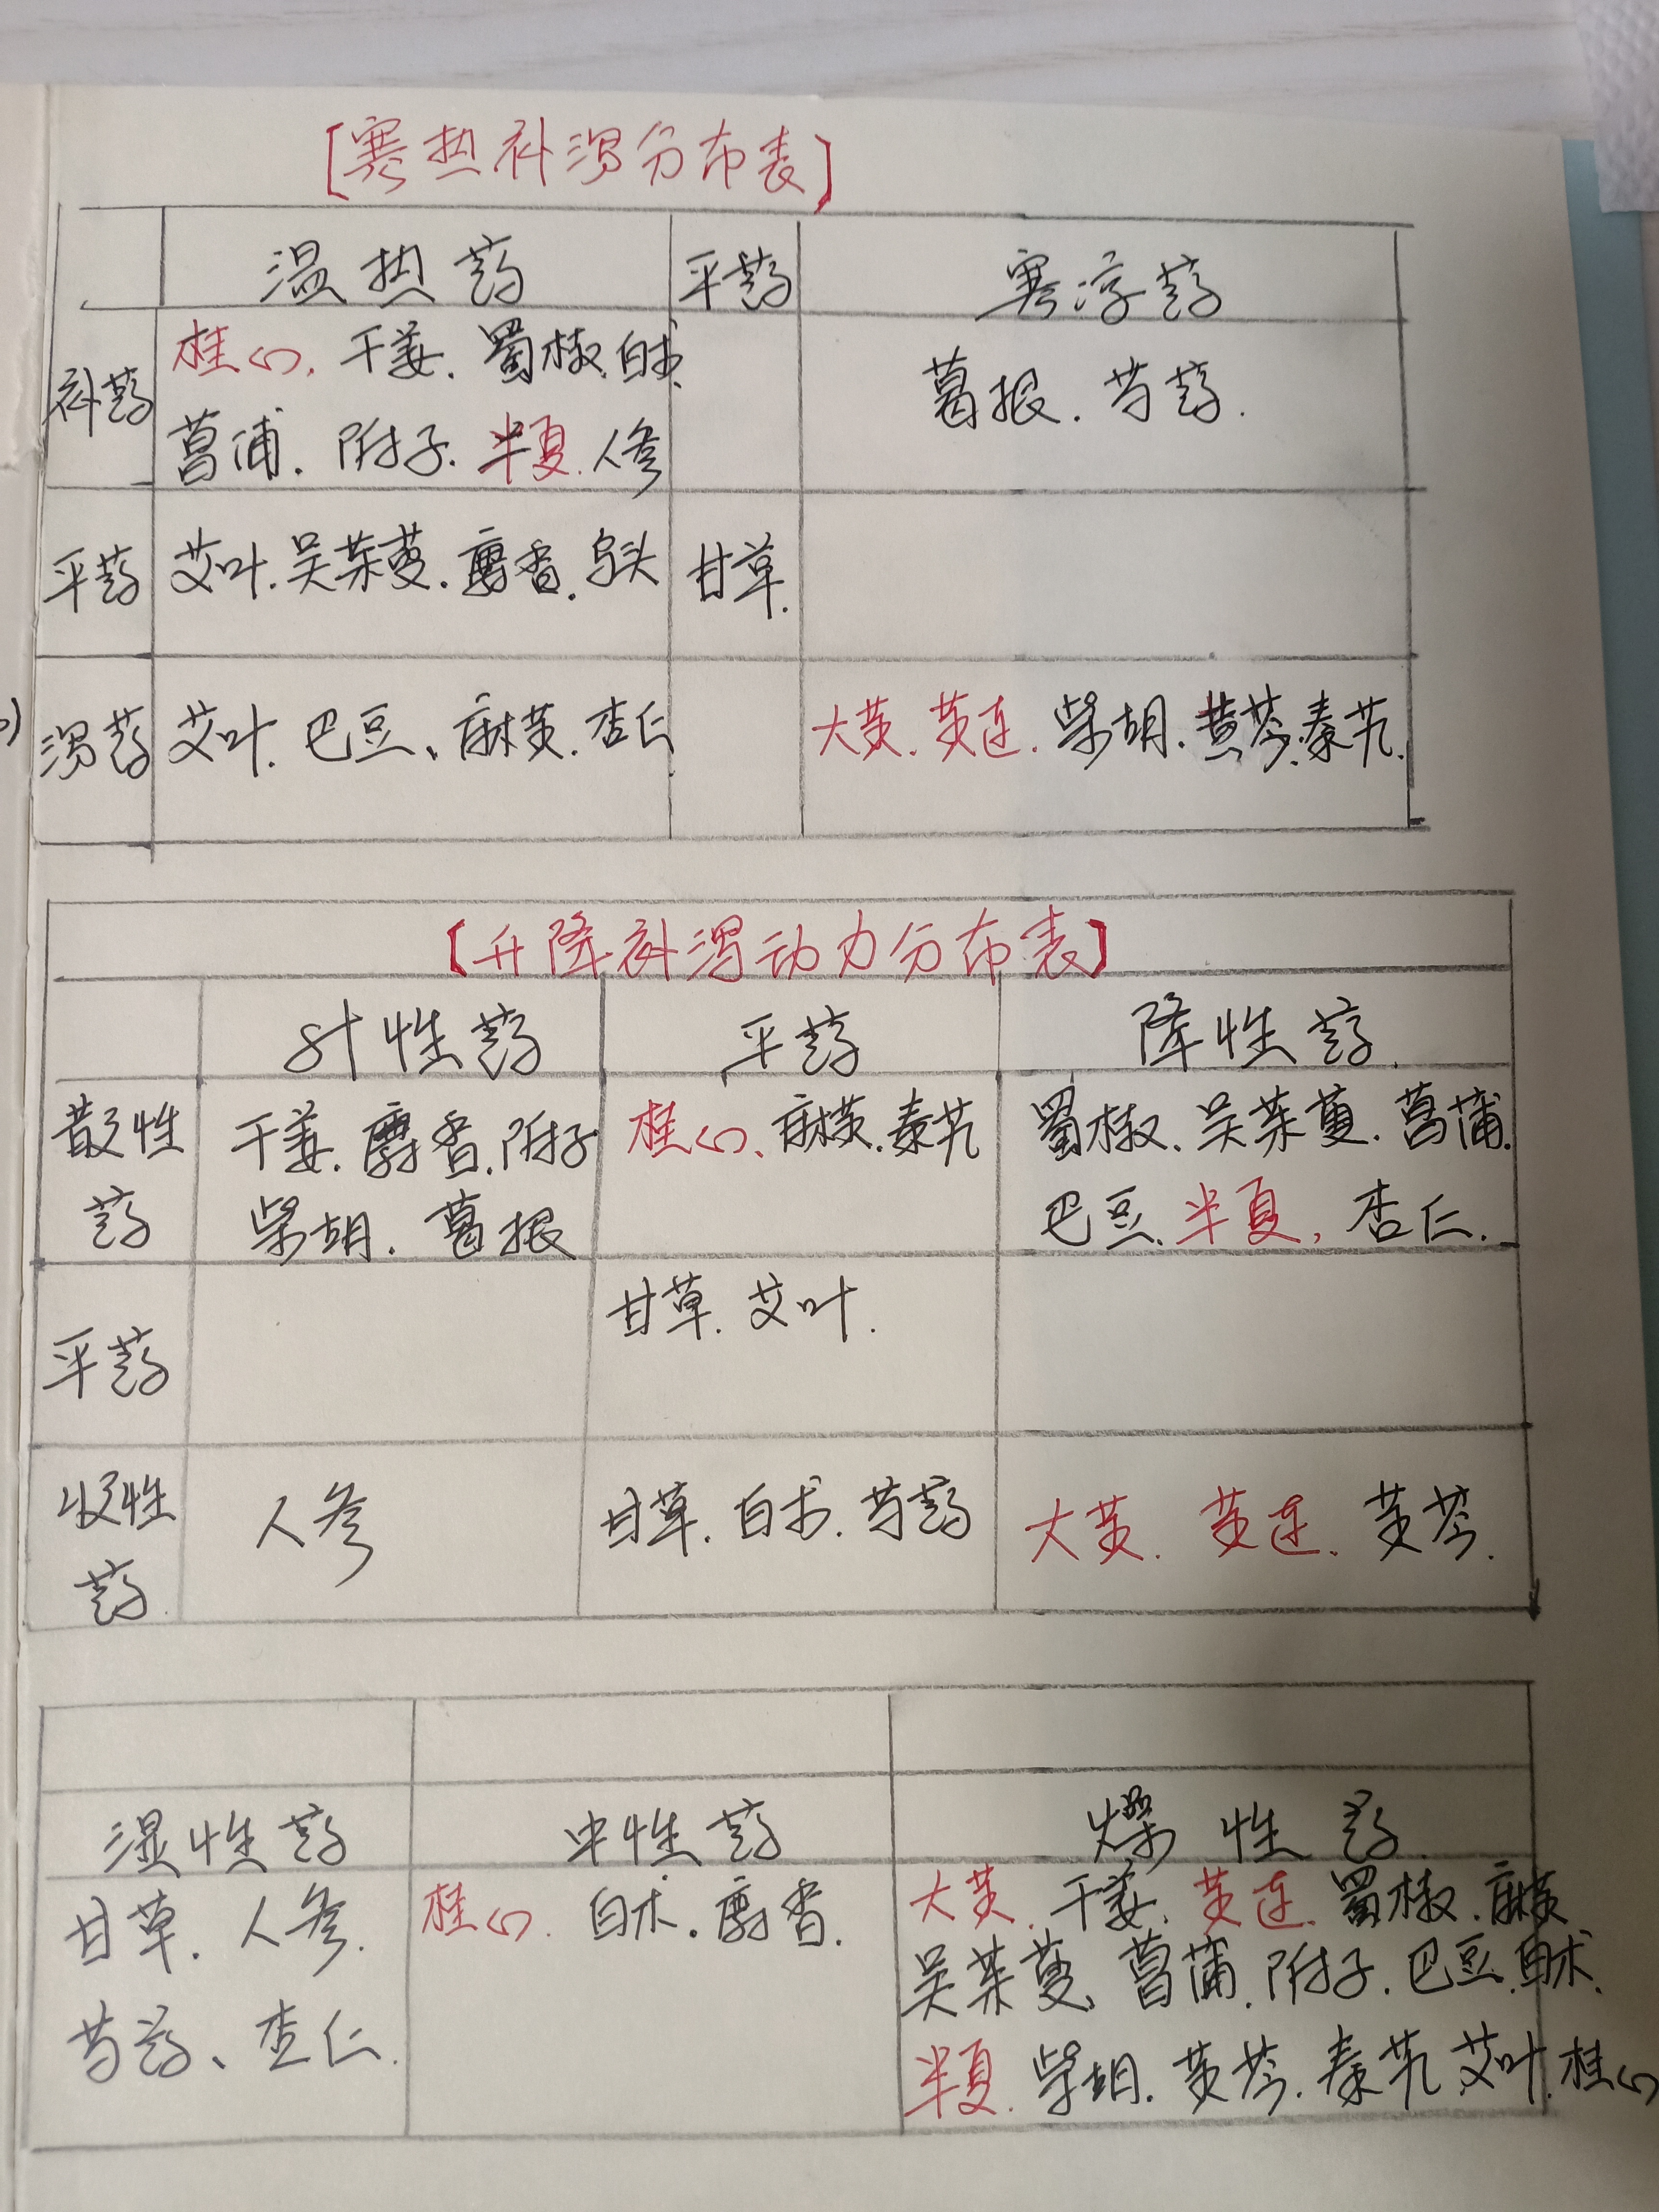 [寒热补泻分布表]
温热药 平药 寒凉药
补药 桂心. 干姜. 蜀椒. 白术. 葛根. 芍药.
菖蒲. 附子. 半夏. 人参
平药 艾叶. 吴茱萸. 麝香. 乌头 甘草.
泻药 艾叶. 巴豆、麻黄. 杏仁 大黄. 黄连. 柴胡. 黄芩. 秦艽.
【升降补泻动力分布表】
升性药 平药 降性药.
散性 干姜. 麝香. 附子 桂心、麻黄. 秦艽 蜀椒. 吴茱萸. 菖蒲.
药 柴胡. 葛根 巴豆. 半夏, 杏仁.
平药 甘草. 艾叶.
收性 人参 甘草. 白术. 芍药 大黄. 黄连. 黄芩.
药
湿性药 中性药 燥性药
甘草. 人参. 桂心. 白术. 麝香. 大黄. 干姜. 黄连. 蜀椒. 麻黄
吴茱萸、菖蒲. 附子. 巴豆. 白术.
芍药、杏仁. 半夏. 柴胡. 黄芩. 秦艽. 艾叶. 桂心